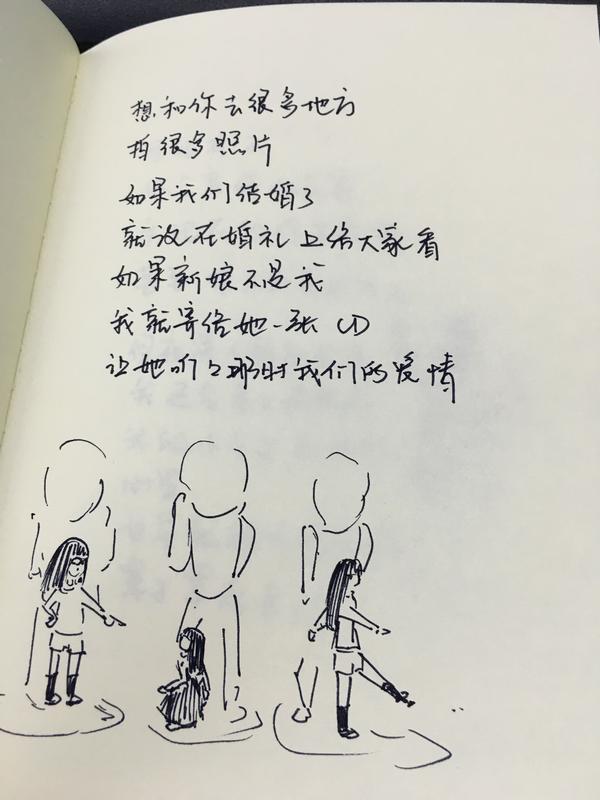 想和你去很多地方
拍很多照片
如果我们结婚了
就放在婚礼上给大家看
如果新娘不是我
我就寄给她一张CD
让她听听那时我们的爱情